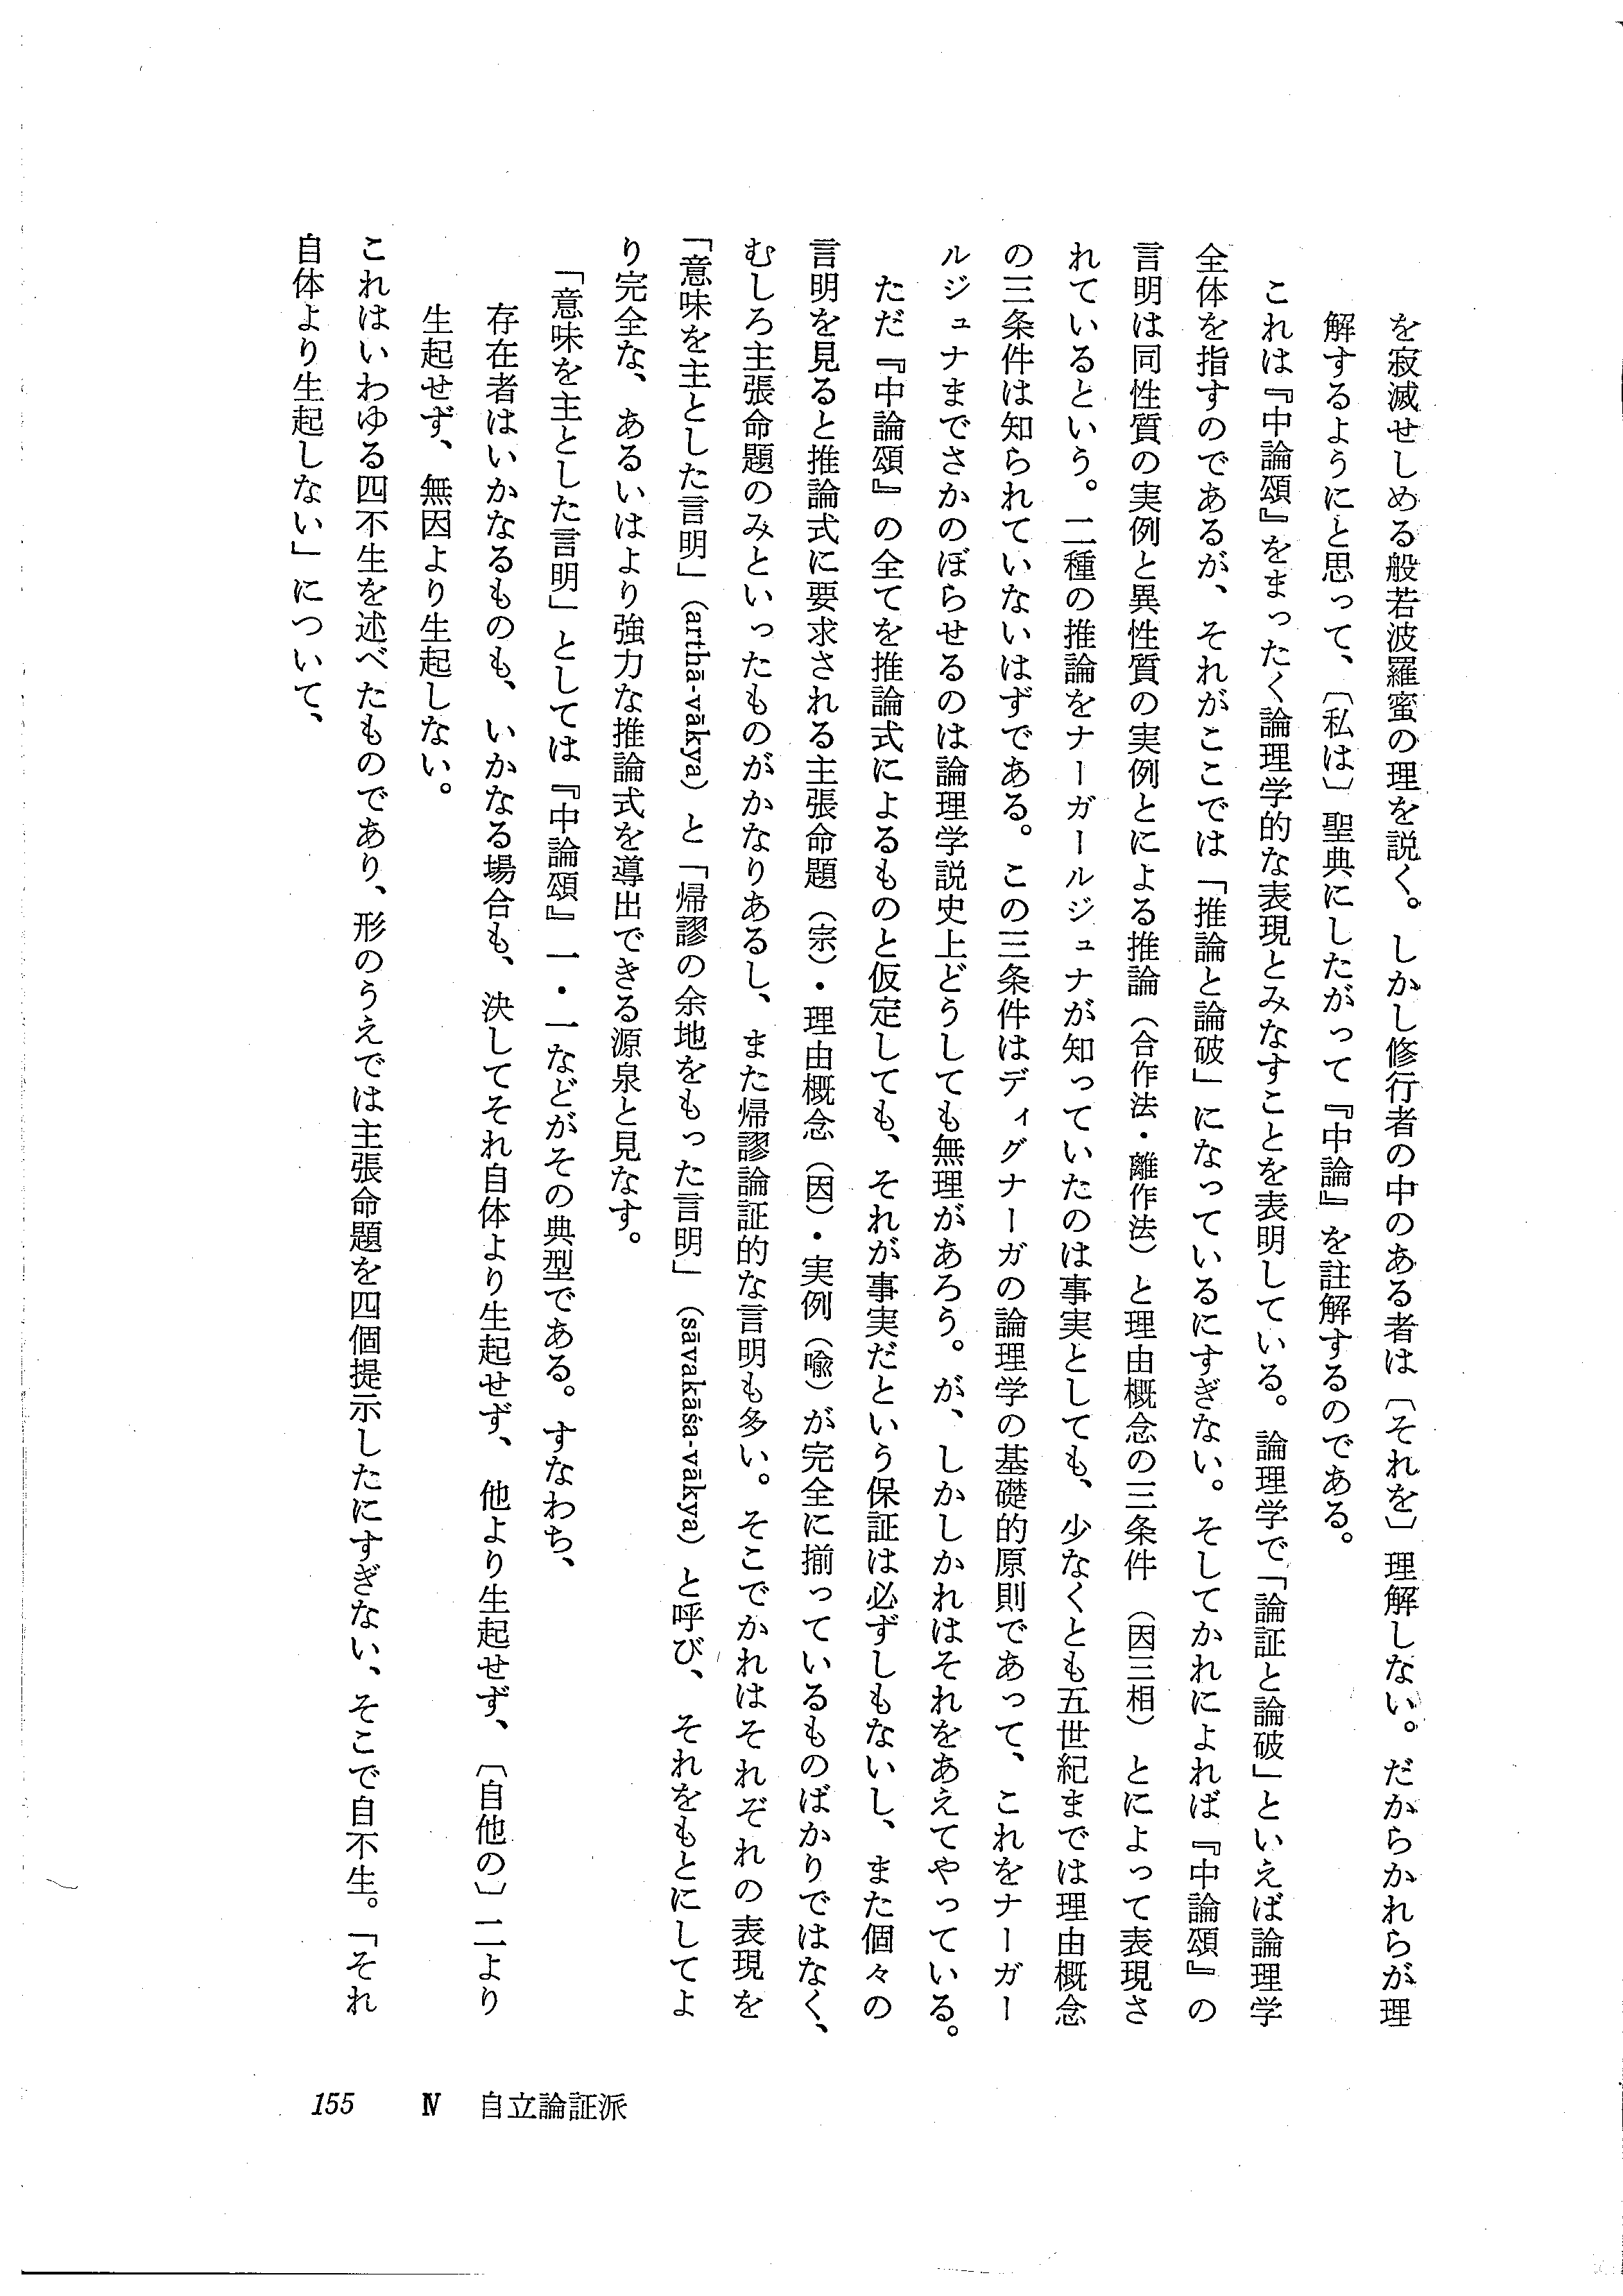 を寂滅せしめる般若波羅蜜の理を説く。しかし修行者の中のある者は〔それを〕理解しない。だからかれらが理
解するようにと思って、〔私は〕聖典にしたがって『中論』を註解するのである。
これは『中論頌』をまったく論理学的な表現とみなすことを表明している。論理学で「論証と論破」といえば論理学
全体を指すのであるが、それがここでは「推論と論破」になっているにすぎない。そしてかれによれば『中論頌』の
言明は同性質の実例と異性質の実例とによる推論（合作法・離作法）と理由概念の三条件（因三相）とによって表現さ
れているという。二種の推論をナーガールジュナが知っていたのは事実としても、少なくとも五世紀までは理由概念
の三条件は知られていないはずである。この三条件はディグナーガの論理学の基礎的原則であって、これをナーガー
ルジュナまでさかのぼらせるのは論理学説史上どうしても無理があろう。が、しかしかれはそれをあえてやっている。
ただ『中論頌』の全てを推論式によるものと仮定しても、それが事実だという保証は必ずしもないし、また個々の
言明を見ると推論式に要求される主張命題（宗）・理由概念（因）・実例（喩）が完全に揃っているものばかりではなく、
むしろ主張命題のみといったものがかなりあるし、また帰謬論証的な言明も多い。そこでかれはそれぞれの表現を
「意味を主とした言明」（arthā-vākya）と「帰謬の余地をもった言明」（sāvakāśa-vākya）と呼び、それをもとにしてよ
り完全な、あるいはより強力な推論式を導出できる源泉と見なす。
「意味を主とした言明」としては『中論頌』一・一などがその典型である。すなわち、
存在者はいかなるものも、いかなる場合も、決してそれ自体より生起せず、他より生起せず、〔自他の〕二より
生起せず、無因より生起しない。
これはいわゆる四不生を述べたものであり、形のうえでは主張命題を四個提示したにすぎない、そこで自不生。「それ
自体より生起しない」について、
155 Ⅳ 自立論証派